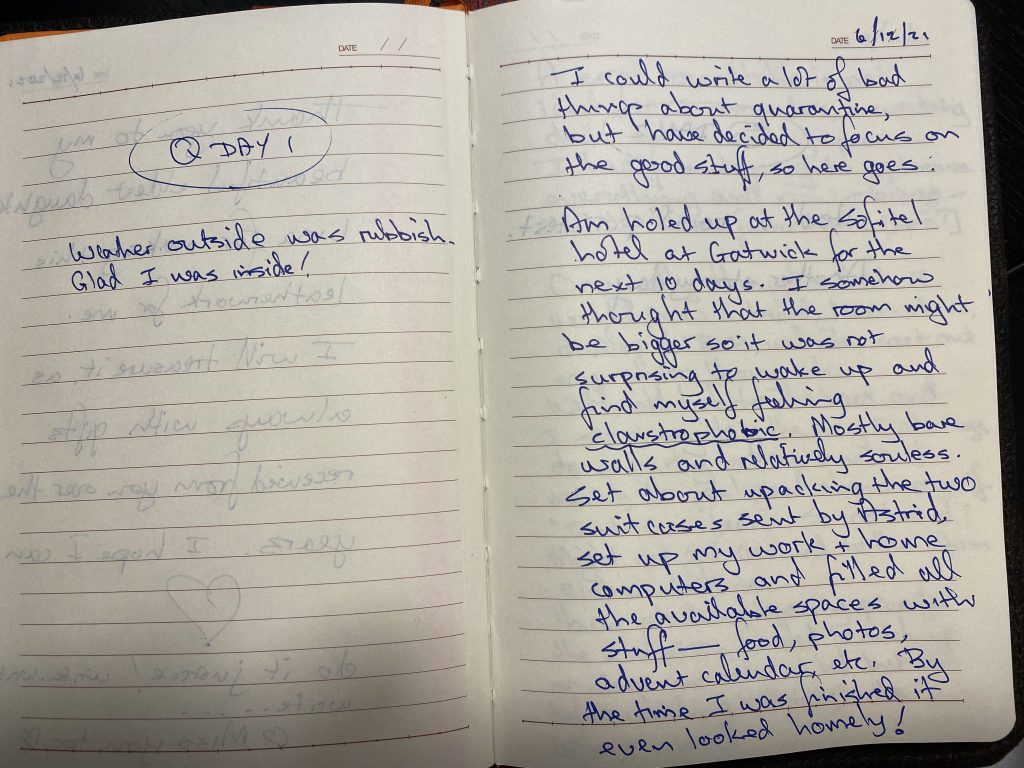 DATE / /
Q DAY 1
Weaher outside was rubbish.
Glad I was inside!
DATE 6/12/21
I could write a lot of bad
things about quarantine,
but have decided to focus on
the good stuff, so here goes:
Am holed up at the Sofitel
hotel at Gatwick for the
next 10 days. I somehow
thought that the room might
be bigger so it was not
surprising to wake up and
find myself feeling
claustrophobic. Mostly bare
walls and relatively souless.
Set about upacking the two
suitcases sent by Astrid,
set up my work + home
computers and filled all
the available spaces with
stuff — food, photos,
advent calendar, etc. By
the time I was finished it
even looked homely!